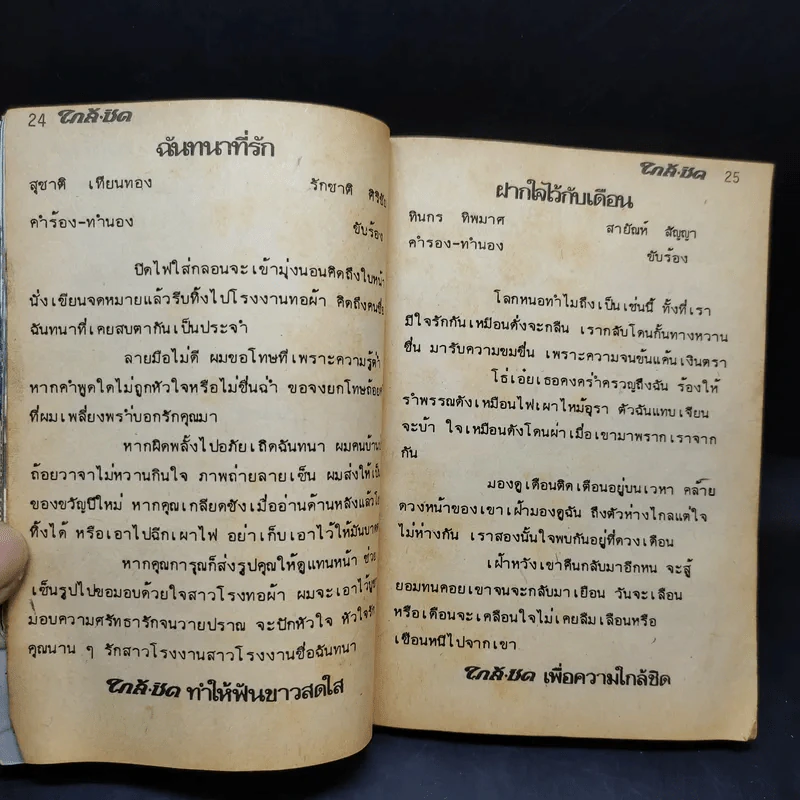 24 ใกล้·ชิด
ฉันทนาที่รัก
สุชาติ เทียนทอง รักชาติ
คำร้อง-ทำนอง ขับร้อง
ปิดไฟใส่กลอนจะเข้ามุ้งนอนคิดถึงใบหน้า
นั่งเขียนจดหมายแล้วรีบทิ้งไปโรงงานทอผ้า คิดถึงคนชื่อ
ฉันทนาที่เคยสบตากันเป็นประจำ
ลายมือไม่ดี ผมขอโทษที่เพราะความรู้ต่ำ
หากคำพูดใดไม่ถูกหัวใจหรือไม่ชื่นฉ่ำ ขอจงยกโทษถ้อยคำ
ที่ผมเพลี่ยงพร้ำบอกรักคุณมา
หากผิดพลั้งไปอภัยเถิดฉันทนา ผมคนบ้าน
ถ้อยวาจาไม่หวานกินใจ ภาพถ่ายลายเซ็น ผมส่งให้เป็น
ของขวัญปีใหม่ หากคุณเกลียดชังเมื่ออ่านด้านหลังแล้ว
ทิ้งได้ หรือเอาไปฉีกเผาไฟ อย่าเก็บเอาไว้ให้มัน
หากคุณการุณก็ส่งรูปคุณให้ดูแทนหน้า ช่วย
เซ็นรูปไปขอมอบด้วยใจสาวโรงทอผ้า ผมจะเอาไว้
มอบความศรัทธารักจนวายปราณ จะปักหัวใจ หัวใจรัก
คุณนาน ๆ รักสาวโรงงานสาวโรงงานชื่อฉันทนา
ใกล้·ชิด ทำให้ฟันขาวสดใส
ใกล้·ชิด 25
ฝากใจไว้กับเดือน
ทินกร ทิพมาศ สายัณห์ สัญญา
คำรอง-ทำนอง ขับร้อง
โลกหนอทำไมถึงเป็นเช่นนี้ ทั้งที่เรา
มีใจรักกันเหมือนดั่งจะกลืน เรากลับโดนกั้นทางหวาน
ชื่น มารับความขมขื่น เพราะความจนข้นแค้นเงินตรา
โธ่เอ๋ยเธอคงคร่ำครวญถึงฉัน ร้องไห้
รำพรรณดังเหมือนไฟเผาไหม้อุรา ตัวฉันแทบเจียน
จะบ้า ใจเหมือนดังโดนผ่าเมื่อเขามาพรากเราจาก
กัน
มองดูเดือนติดเตือนอยู่บนเวหา คล้าย
ดวงหน้าของเขาเฝ้ามองดูฉัน ถึงตัวห่างไกลแต่ใจ
ไม่ห่างกัน เราสองนั้นใจพบกันอยู่ที่ดวงเดือน
เฝ้าหวังเขาคืนกลับมาอีกหน จะสู้
ยอมทนคอยเขาจนจะกลับมาเยือน วันจะเลือน
หรือเดือนจะเคลื่อนใจไม่เคยลืมเลือนหรือ
เชือนหนีไปจากเขา
ใกล้·ชิด เพื่อความใกล้ชิด